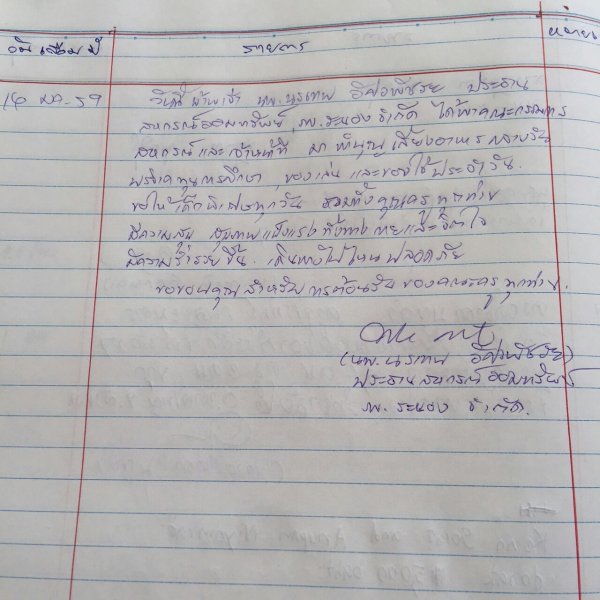 วัน เดือน ปี
รายการ
16 มค-59
วันนี้ ข้าพเจ้า นพ.นรเทพ อัศวพัชระ ประธาน
สหกรณ์ออมทรัพย์ รพ.ระนอง จำกัด ได้พาคณะกรรมการ
สหกรณ์และเจ้าหน้าที่ มาทำบุญเลี้ยงอาหารกลางวัน
บริจาคทุนการศึกษา, ของเล่น และของใช้ประจำวัน.
ขอให้เด็กพิเศษทุกวัน รวมทั้งคุณครู ทุกท่าน
มีความสุข สุขภาพแข็งแรง ทั้งทางกายและจิตใจ
มีความร่ำรวยขึ้น. เดินทางไปไหนปลอดภัย
ขอขอบคุณสำหรับการต้อนรับของคณะครูทุกท่าน.
(นพ.นรเทพ อัศวพัชระ)
ประธานสหกรณ์ออมทรัพย์
รพ.ระนอง จำกัด.